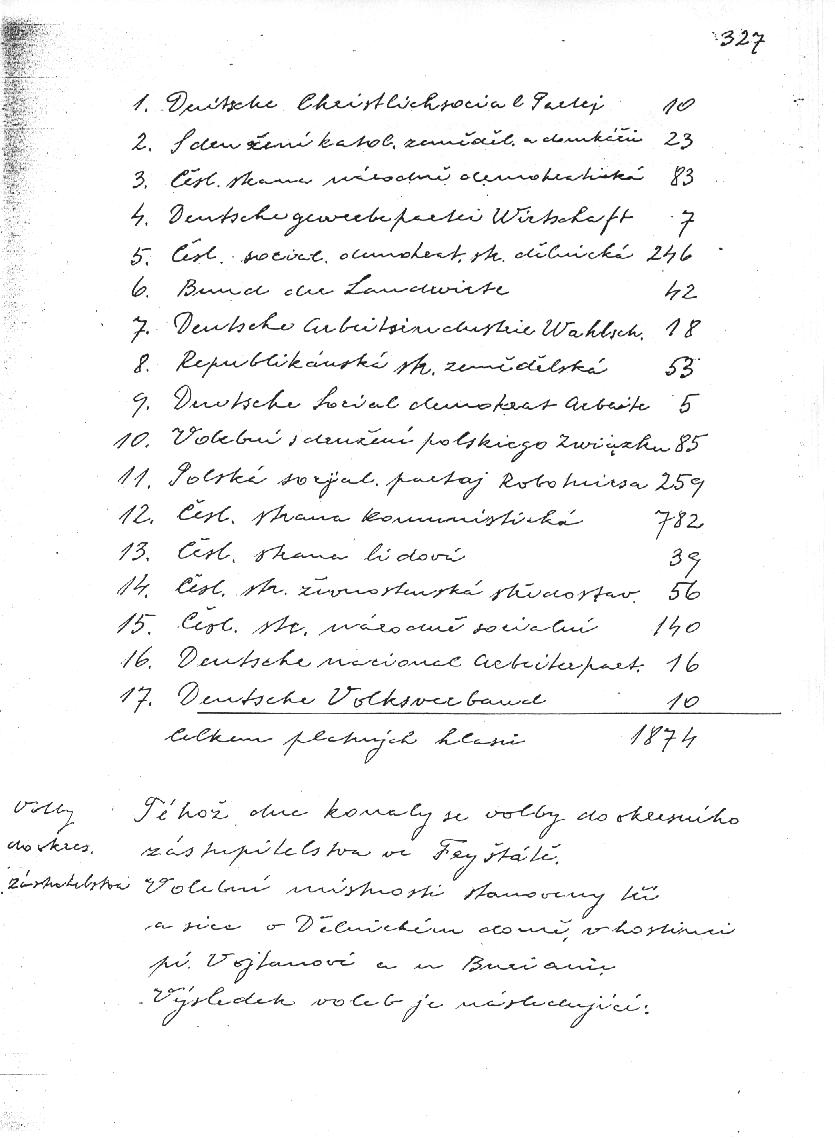 327
1. Deutsche Christlichsocial Partej 10
2. Sdružení katol. zeměděl. a domkářů 23
3. Čsl. strana národně demokratická 83
4. Deutsche gewerbepartei Wirtschaft 7
5. Čsl. social. demokrat. str. dělnická 246
6. Bund der Landwirte 42
7. Deutsche Arbeitsindustrie Wahlsch. 18
8. Republikánská str. zemědělská 53
9. Deutsche Social demokrat Arbeite 5
10. Volební sdružení polskiego Związku 85
11. Polská socijal. partaj Robotnicsa 259
12. Čsl. strana komunistická 782
13. Čsl. strana lidová 39
14. Čsl. str. živnostenská středostav. 56
15. Čsl. str. národně socialní 140
16. Deutsche nacional Arbeiterpart. 16
17. Deutsche Volksverband 10
Celkem platných hlasů 1874
Volby Téhož dne konaly se volby do okresního
do okres. zástupitelstva ve Fryštátě.
Volební místnosti stanoveny tři
a sice v Dělnickém domě, v hostinci
pí. Vojtanové a u Buriana
Výsledek voleb je následující: